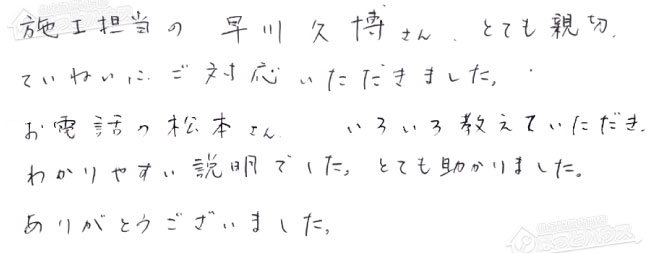 施工担当の 早川久博さん、とても親切、
ていねいに ご対応いただきました。
お電話の松本さん、 いろいろ教えていただき、
わかりやすい説明でした。とても助かりました。
ありがとうございました。